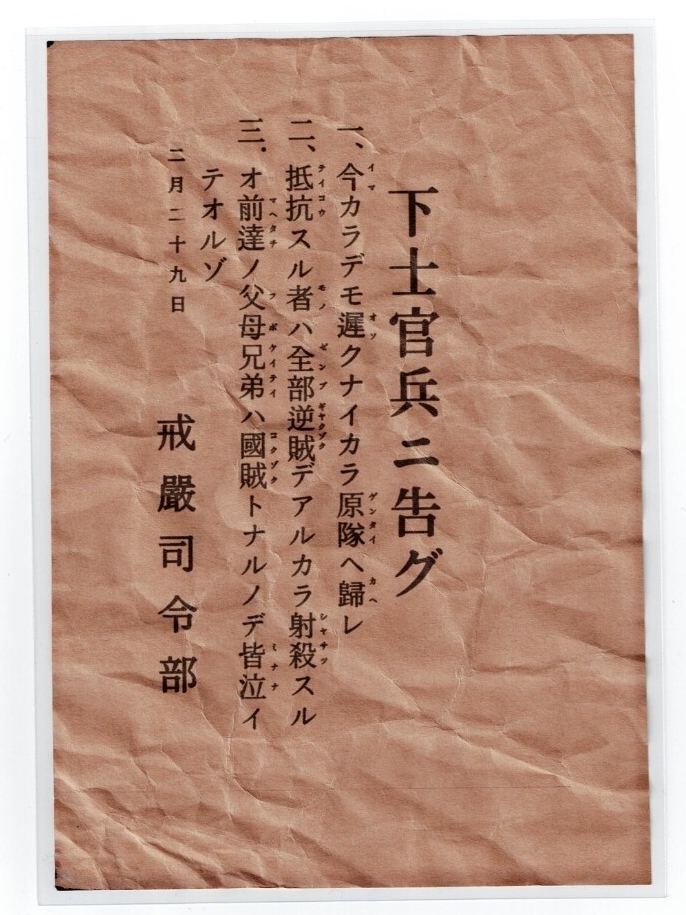 下士官兵ニ告グ
一、今カラデモ遲クナイカラ原隊ヘ歸レ
二、抵抗スル者ハ全部逆賊デアルカラ射殺スル
三．オ前達ノ父母兄弟ハ國賊トナルノデ皆泣イ
テオルゾ
二月二十九日
戒嚴司令部